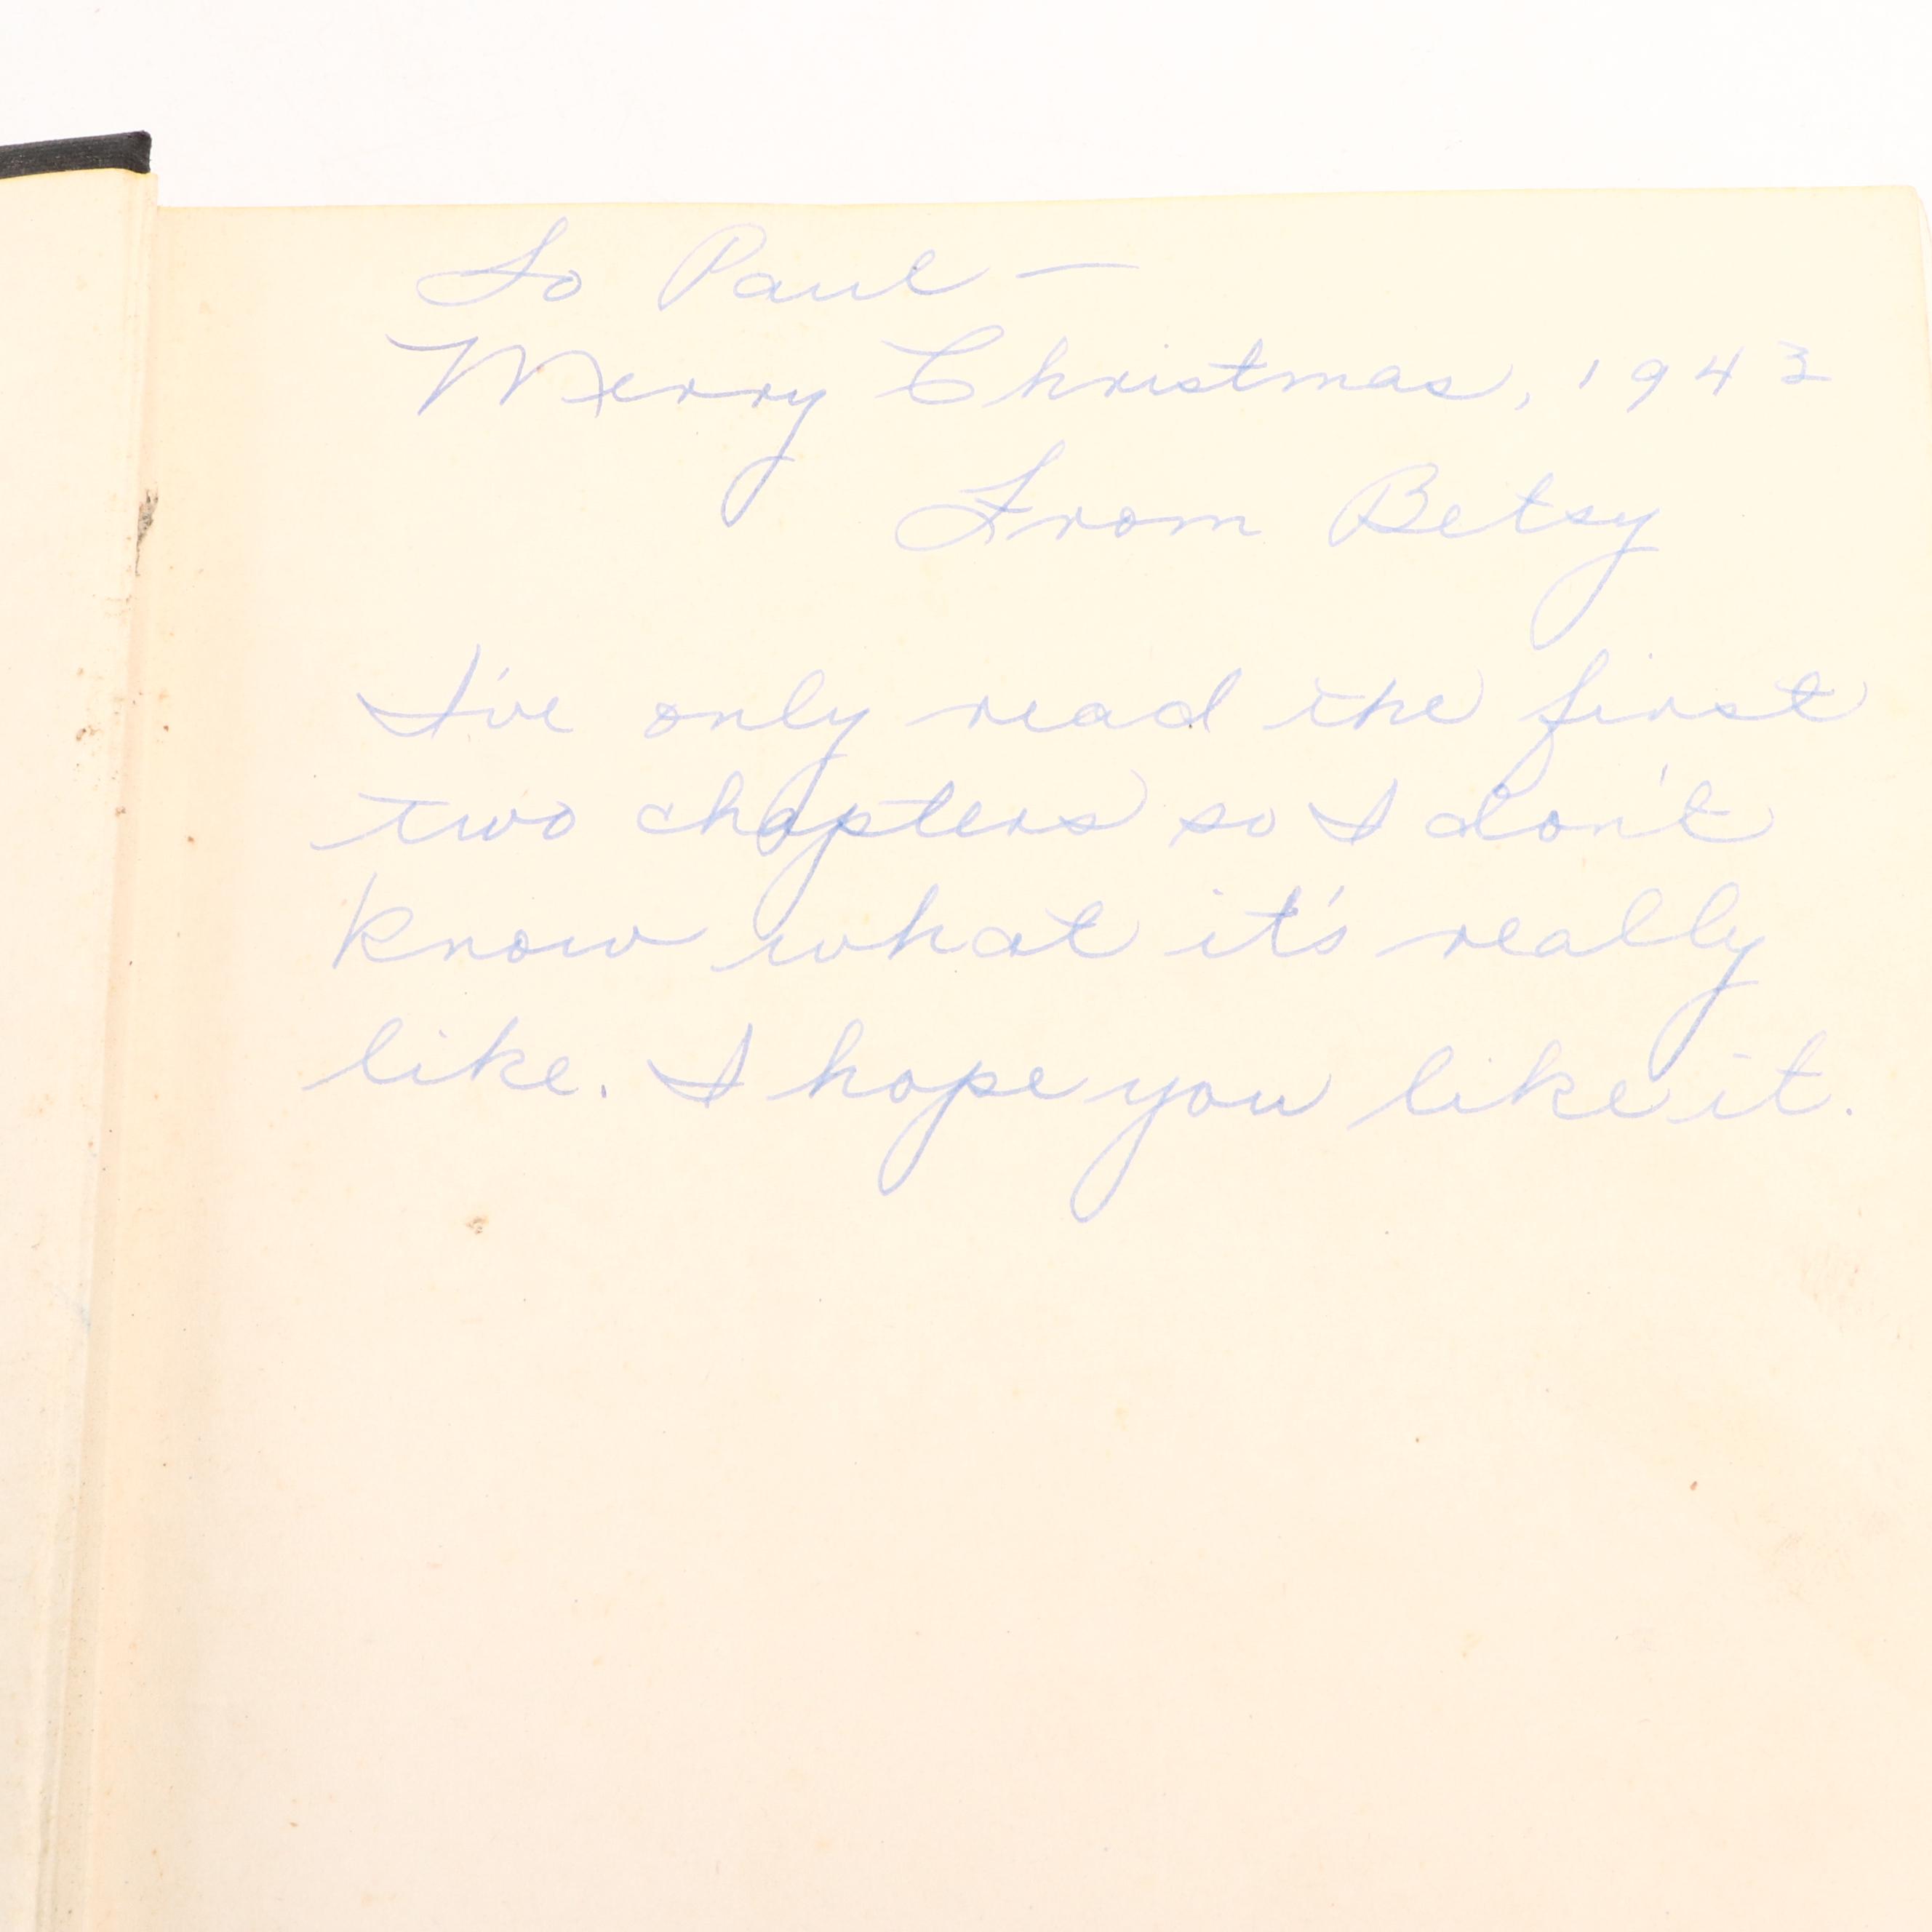 To Paul —
Merry Christmas, 1943
From Betsy
I've only read the first
two chapters so I don't
know what it's really
like. I hope you like it.